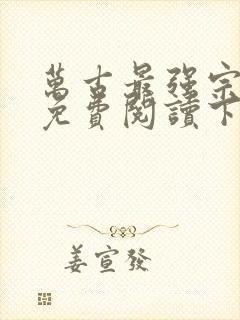 萬古最強宗
免費閱讀下
姜宣發